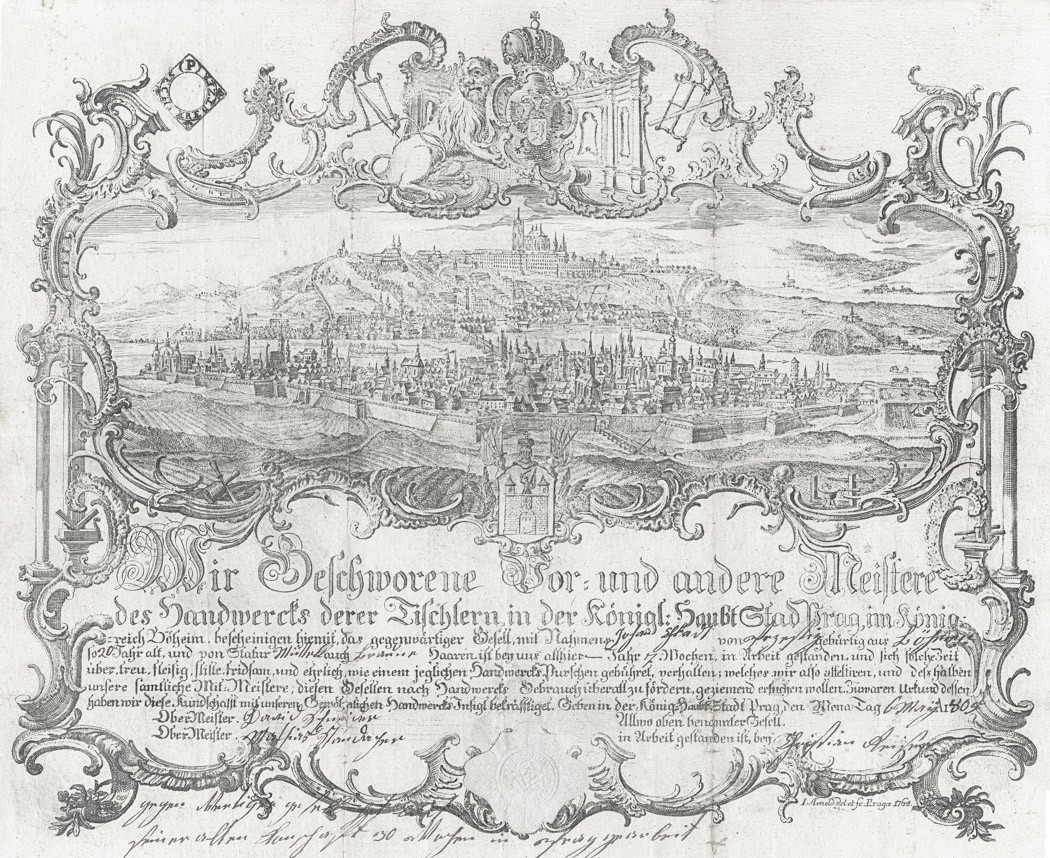 P
Wir Geschworene Vor: und andere Meistere
des Handwercks derer Tischlern, in der Königl: Haubt Stad Prag, im König:
reich Böheim, bescheinigen hiemit, das gegenwärtiger Gesell, mit Nahmens Johan von gebürtig aus
so 20 Jahr alt, und von Statur Mittel auch braune Haaren ist bey uns allhier — Jahr 17 Wochen, in Arbeit gestanden, und sich solche Zeit
über, treu, fleisig, stille, fridsam, und ehrlich, wie einem jeglichen Handwercks Purschen gebühret, verhalten; welches wir also attestiren, und deshalben
unsere samtliche Mit-Meistere, diesen Gesellen nach Handwercks Gebrauch überall zu fördern, geziemend ersuchen wollen. Zu waren Urkund dessen
haben wir diese Kundschafft mit unseren Gewöhnlichen Handwercks Insigl bekräfftiget. Geben in der Königl: Haubt Stadt Prag, den Mona Tag 6
Ober Meister. David Allwo oben benannter Gesell.
Ober Meister. Mathias in Arbeit gestanden ist, bey Christian
gegen
seiner alten 30 Wochen in Prag gearbeit